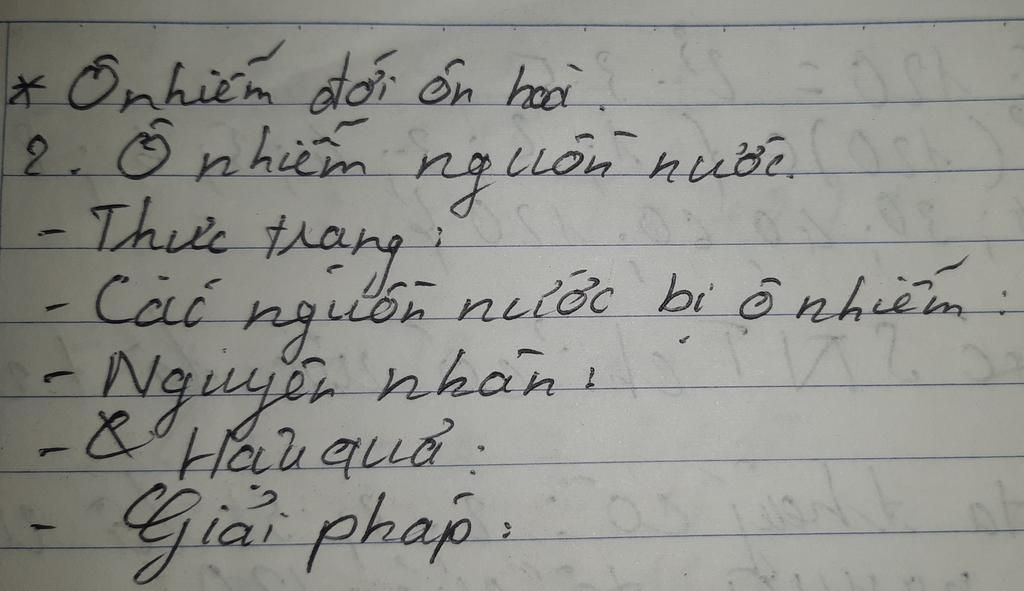 * Ô nhiễm đới ôn hoà.
2. Ô nhiễm nguồn nước.
- Thực trạng:
- Các nguồn nước bị ô nhiễm:
- Nguyên nhân:
- Hậu quả:
- Giải pháp: